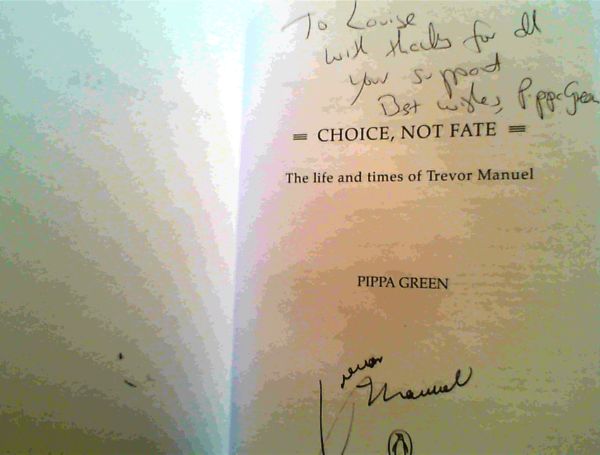 To Louise
with thanks for all
your support
Best wishes, Pippa Green
CHOICE, NOT FATE
The life and times of Trevor Manuel
PIPPA GREEN
Trevor
Manuel